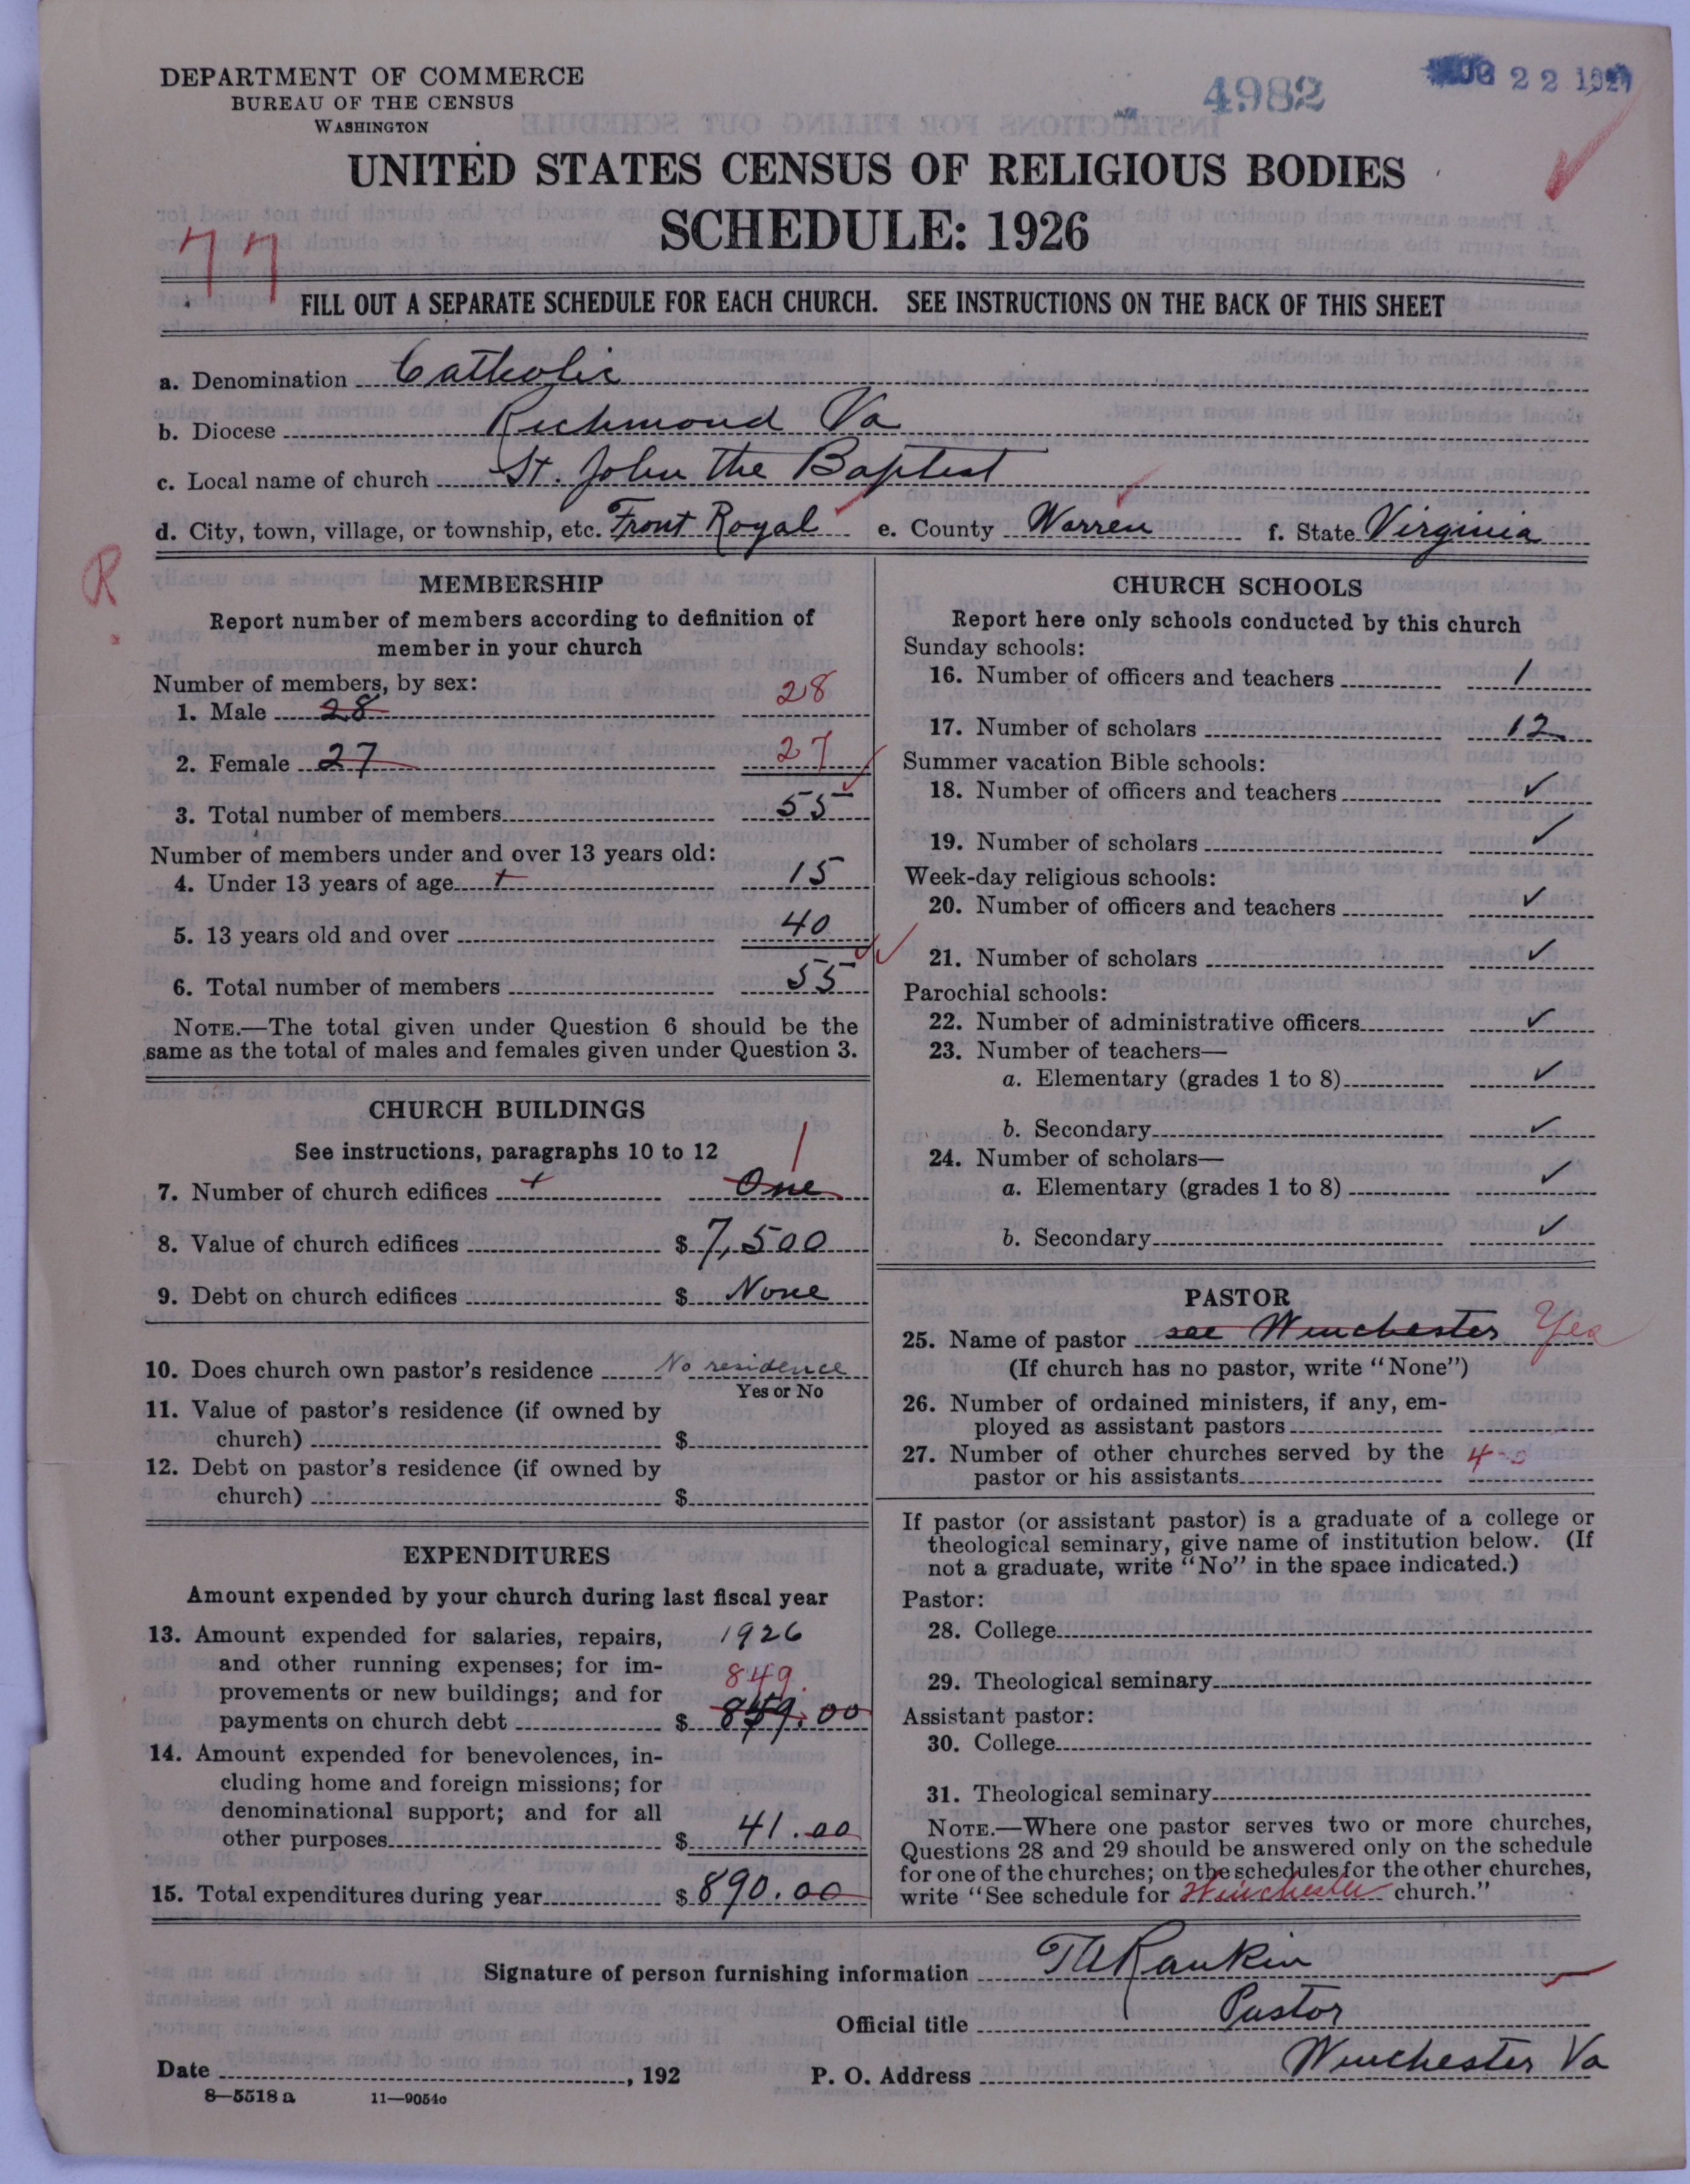 DEPARTMENT OF COMMERCE
BUREAU OF THE CENSUS
WASHINGTON
4982
AUG 22 1927
UNITED STATES CENSUS OF RELIGIOUS BODIES
SCHEDULE: 1926
77
FILL OUT A SEPARATE SCHEDULE FOR EACH CHURCH. SEE INSTRUCTIONS ON THE BACK OF THIS SHEET
a. Denomination Catholic
b. Diocese Richmond Va
c. Local name of church St. John the Baptist
d. City, town, village, or township, etc. Front Royal e. County Warren f. State Virginia
R
MEMBERSHIP
Report number of members according to definition of
member in your church
Number of members, by sex:
1. Male 28 28
2. Female 27 27
3. Total number of members 55
Number of members under and over 13 years old:
4. Under 13 years of age 15
5. 13 years old and over 40
6. Total number of members 55
NOTE.—The total given under Question 6 should be the
same as the total of males and females given under Question 3.
CHURCH BUILDINGS
See instructions, paragraphs 10 to 12
7. Number of church edifices One 1
8. Value of church edifices $ 7,500
9. Debt on church edifices $ None
10. Does church own pastor's residence No residence
Yes or No
11. Value of pastor's residence (if owned by
church) $
12. Debt on pastor's residence (if owned by
church) $
EXPENDITURES
Amount expended by your church during last fiscal year
13. Amount expended for salaries, repairs, 1926
and other running expenses; for im-
provements or new buildings; and for 849.
payments on church debt $ 849.00
14. Amount expended for benevolences, in-
cluding home and foreign missions; for
denominational support; and for all
other purposes $ 41.00
15. Total expenditures during year $ 890.00
CHURCH SCHOOLS
Report here only schools conducted by this church
Sunday schools:
16. Number of officers and teachers 1
17. Number of scholars 12
Summer vacation Bible schools:
18. Number of officers and teachers ✓
19. Number of scholars ✓
Week-day religious schools:
20. Number of officers and teachers ✓
21. Number of scholars ✓
Parochial schools:
22. Number of administrative officers ✓
23. Number of teachers—
a. Elementary (grades 1 to 8) ✓
b. Secondary ✓
24. Number of scholars—
a. Elementary (grades 1 to 8) ✓
b. Secondary ✓
PASTOR
25. Name of pastor see Winchester Yes
(If church has no pastor, write "None")
26. Number of ordained ministers, if any, em-
ployed as assistant pastors
27. Number of other churches served by the 4
pastor or his assistants
If pastor (or assistant pastor) is a graduate of a college or
theological seminary, give name of institution below. (If
not a graduate, write "No" in the space indicated.)
Pastor:
28. College
29. Theological seminary
Assistant pastor:
30. College
31. Theological seminary
NOTE.—Where one pastor serves two or more churches,
Questions 28 and 29 should be answered only on the schedule
for one of the churches; on the schedules for the other churches,
write "See schedule for Winchester church."
Signature of person furnishing information Rankin
Official title Pastor
Date , 192 P. O. Address Winchester Va
8—5518a 11—9054o